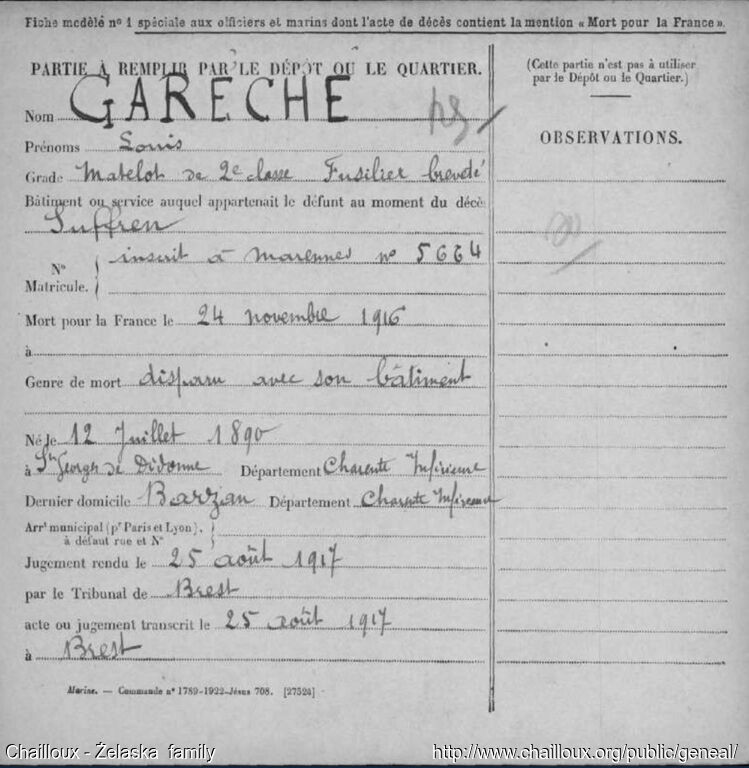 Fiche modèle nº 1 spéciale aux officiers et marins dont l'acte de décès contient la mention « Mort pour la France ».
PARTIE À REMPLIR PAR LE DÉPÔT OU LE QUARTIER.
Nom GARECHE
Prénoms Louis
Grade Matelot de 2e classe Fusilier breveté
Bâtiment ou service auquel appartenait le défunt au moment du décès
Suffren
Nº Matricule. inscrit à Marennes nº 5664
Mort pour la France le 24 novembre 1916
à
Genre de mort disparu avec son bâtiment
Né le 12 Juillet 1890
à St Georges de Didonne Département Charente Inférieure
Dernier domicile Barzan Département Charente Inférieure
Arrt municipal (pr Paris et Lyon),
à défaut rue et Nº
Jugement rendu le 25 août 1917
par le Tribunal de Brest
acte ou jugement transcrit le 25 août 1917
à Brest
Marine. — Commande nº 1789-1922-Jésus 708. [27524]
(Cette partie n'est pas à utiliser
par le Dépôt ou le Quartier.)
OBSERVATIONS.
Chailloux - Żelaska family
http://www.chailloux.org/public/geneal/